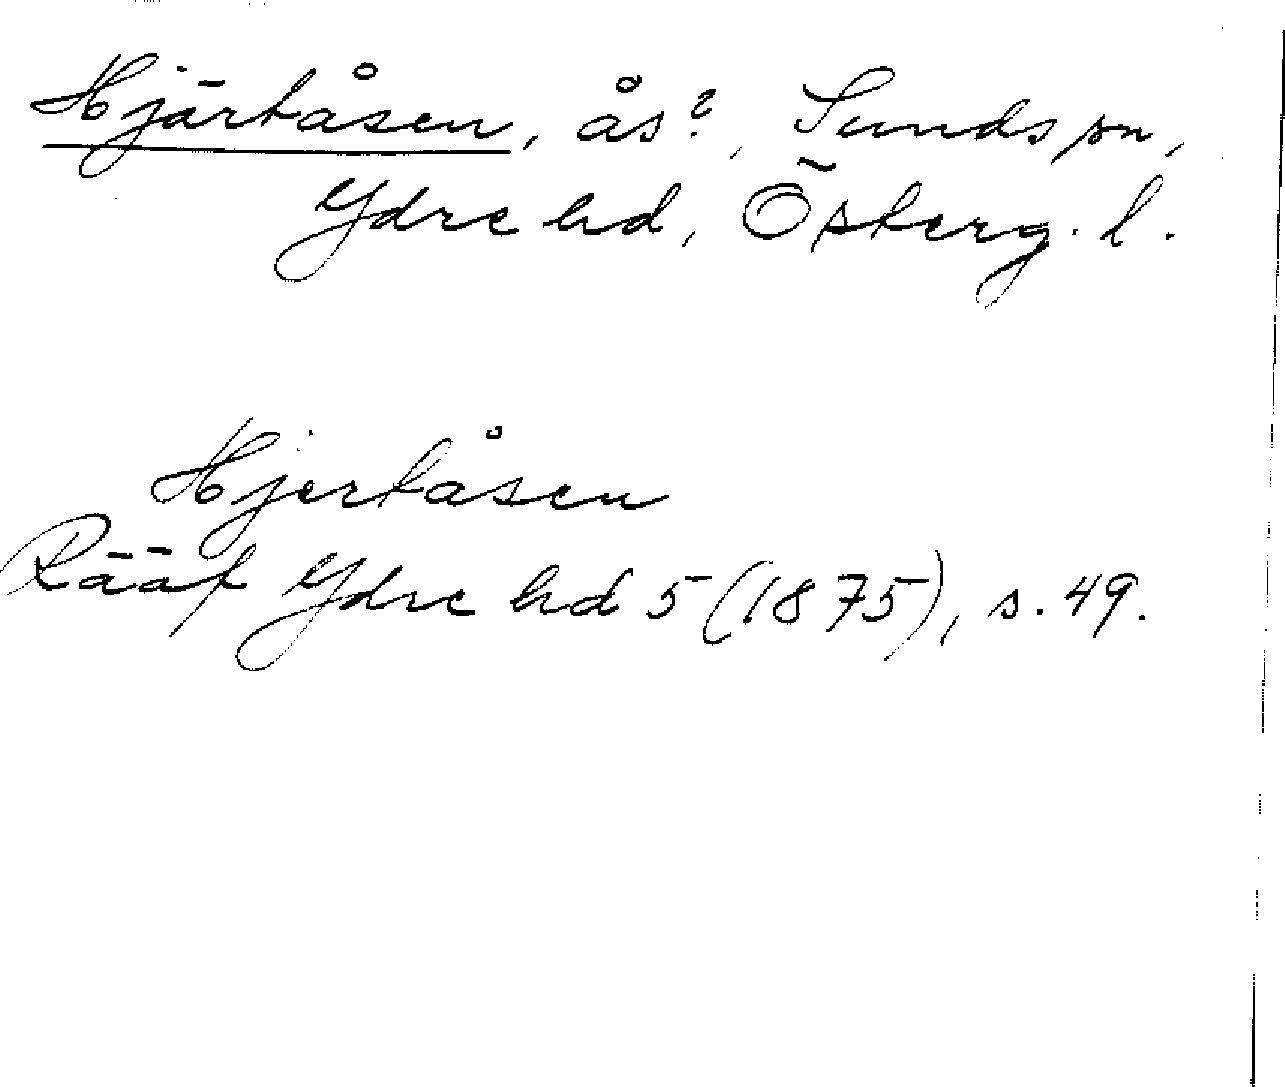 Hjärtåsen, ås?, Sunds sn,
Ydre hd, Österg. l.
Hjertåsen
Rääf Ydre hd 5 (1875), s. 49.